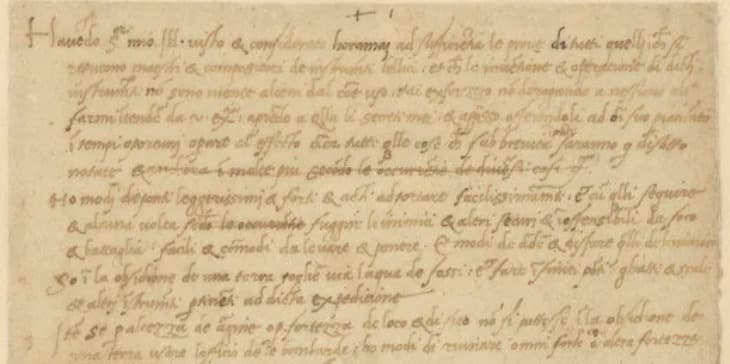 + 1
Havēdo S.r mio Ill. visto & considerato horamai ad sufficiētia le prove di tutti quelli che si
reputono maestri & compositori de instrumēti bellici: et che le inventione & operatione di dicti
instrumēti nō sono niente alieni dal cōe uso: mi exforzerò nō derogando a nessuno al
farmi intendere da v. Ex.: aprēdo a q̄lla li secreti mei: & apresso offerendoli ad ōi suo piacimēto
ī tempi oportuni operare cū effecto circa tutte q̄lle cose che sub brevità saranno q disotto
notate & ancora ī molte più secōdo le occurrētie de diversi casi
Ho modi de ponti leggerissimi & forti & acti ad portare facilissimamēte: & cū q̄lli seguire
& alcuna volta secōdo le occurrētie fuggire li inimici & altri securi & inoffensibili da foco
& battaglia: facili & cōmodi da levare & ponere. E modi de arder & disfare q̄lli de linimico
So ī la obsidione de una terra toglier via laqua de fossi: & fare īfiniti pōti ghatti & scale
& altri īstrumēti ptinēti ad dicta expeditione
Ite se p altezza de argine o p fortezza de loco & di sito nō si potesse ī la obsidione de
una terra usare lofficio de le bombarde: ho modi di ruinare omni o altra fortezza